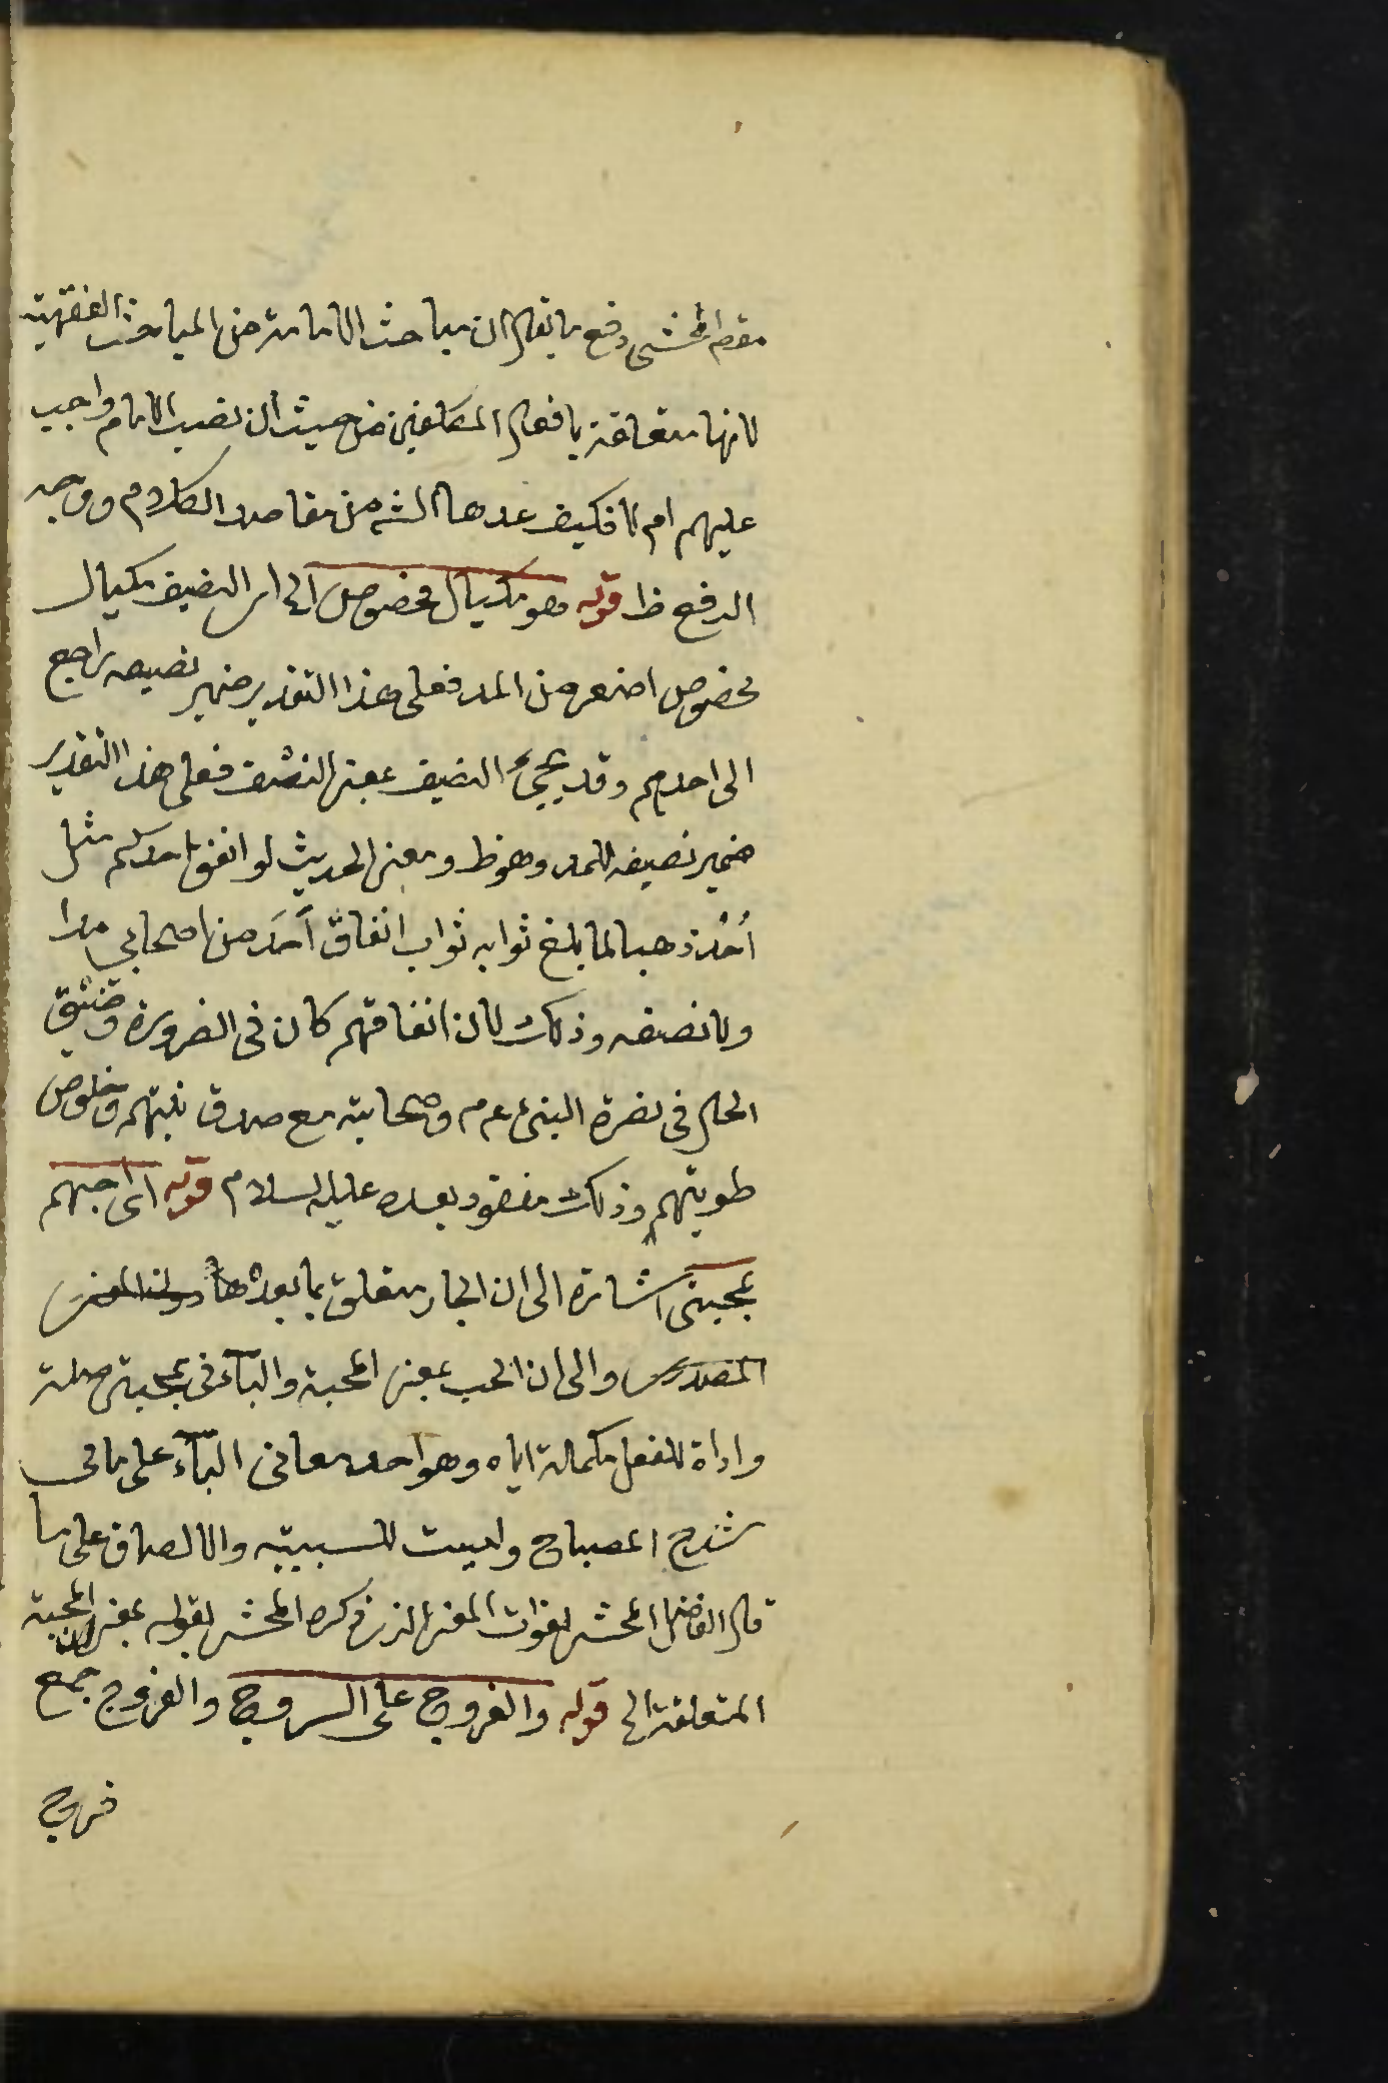 مقصود المحشى دفع ما يقال ان مباحث الامامة من المباحث الفقهية
لانها متعلقة بافعال المكلفين من حيث ان نصب الامام واجب
عليهم ام لا فكيف عدها الش من مقاصد الكلام ووجه
الدفع ظ قوله وهو مكيال مخصوص اى النصيف مكيال
مخصوص اصغر من المد فعلى هذا التقدير ضمير نصيفه راجع
الى احدهم وقد يجئ النصيف بمعنى النصف فعلى هذا التقدير
ضمير نصيفه للمد وهو ظ ومعنى الحديث لو انفق احدكم مثل
أُحُد ذهبا لما بلغ ثوابه ثواب انفاق أحَد من اصحابى مدا
ولا نصفه وذلك لان انفاقهم كان فى الضرورة وضيق
الحال فى نصرة النبى عم م وصحابته مع صدق نيتهم وخلوص
طويتهم وذلك مفقود بعده عليه السلام قوله اى احبهم
بمحبتى اشارة الى ان الجار متعلق بما بعدها
المصدر والى ان الحب بمعنى المحبة والباء فى بمحبتى صلة
واداة للفعل مكملة اياه وهو احد معانى الباء على ما فى
شرح المصباح وليست للسببية والالصاق على ما
قال الفاضل المحشى لفوات المعنى الذى ذكره المحشى بقوله بمعنى ان المحبة
المتعلقة الى قوله والفروج على السروج والفروج جمع
فروج